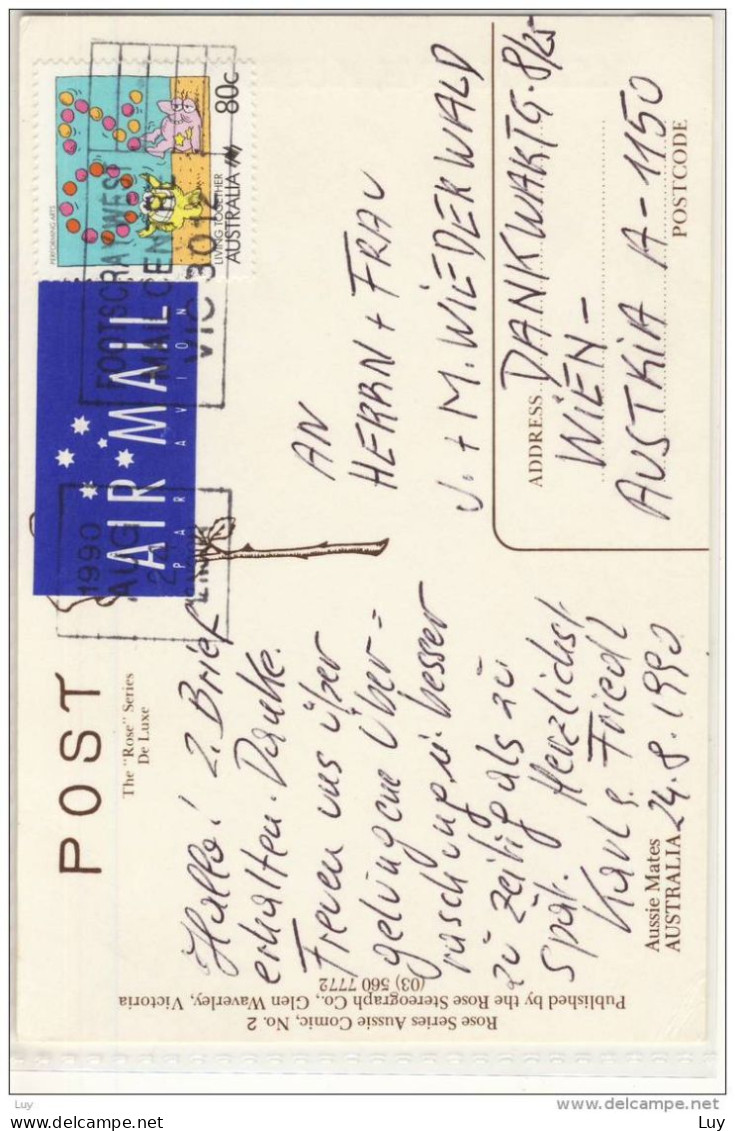 POST
The "Rose" Series
De Luxe
Hallo! 2. Brief
erhalten. Danke.
Freuen uns über
gelungene Über=
raschung u. besser
zu zeitig als zu
spät. Herzlichst
Karl u. Friedl
24.8.1990
Aussie Mates
AUSTRALIA
Rose Series Aussie Comic, No. 2
Published by the Rose Stereograph Co., Glen Waverley, Victoria
(03) 560 7772
PERFORMING ARTS
LIVING TOGETHER
AUSTRALIA
80c
FOOTSCRAY WEST
MAIL CENTRE
VIC 3012
AIR MAIL
PAR AVION
1990
AUG
24
AN
HERRN + FRAU
J. + M. WIEDERWALD
DANKWARTG. 8/25
ADDRESS
WIEN-
AUSTRIA A-1150
POSTCODE
Luy
Luy
www.delcampe.net